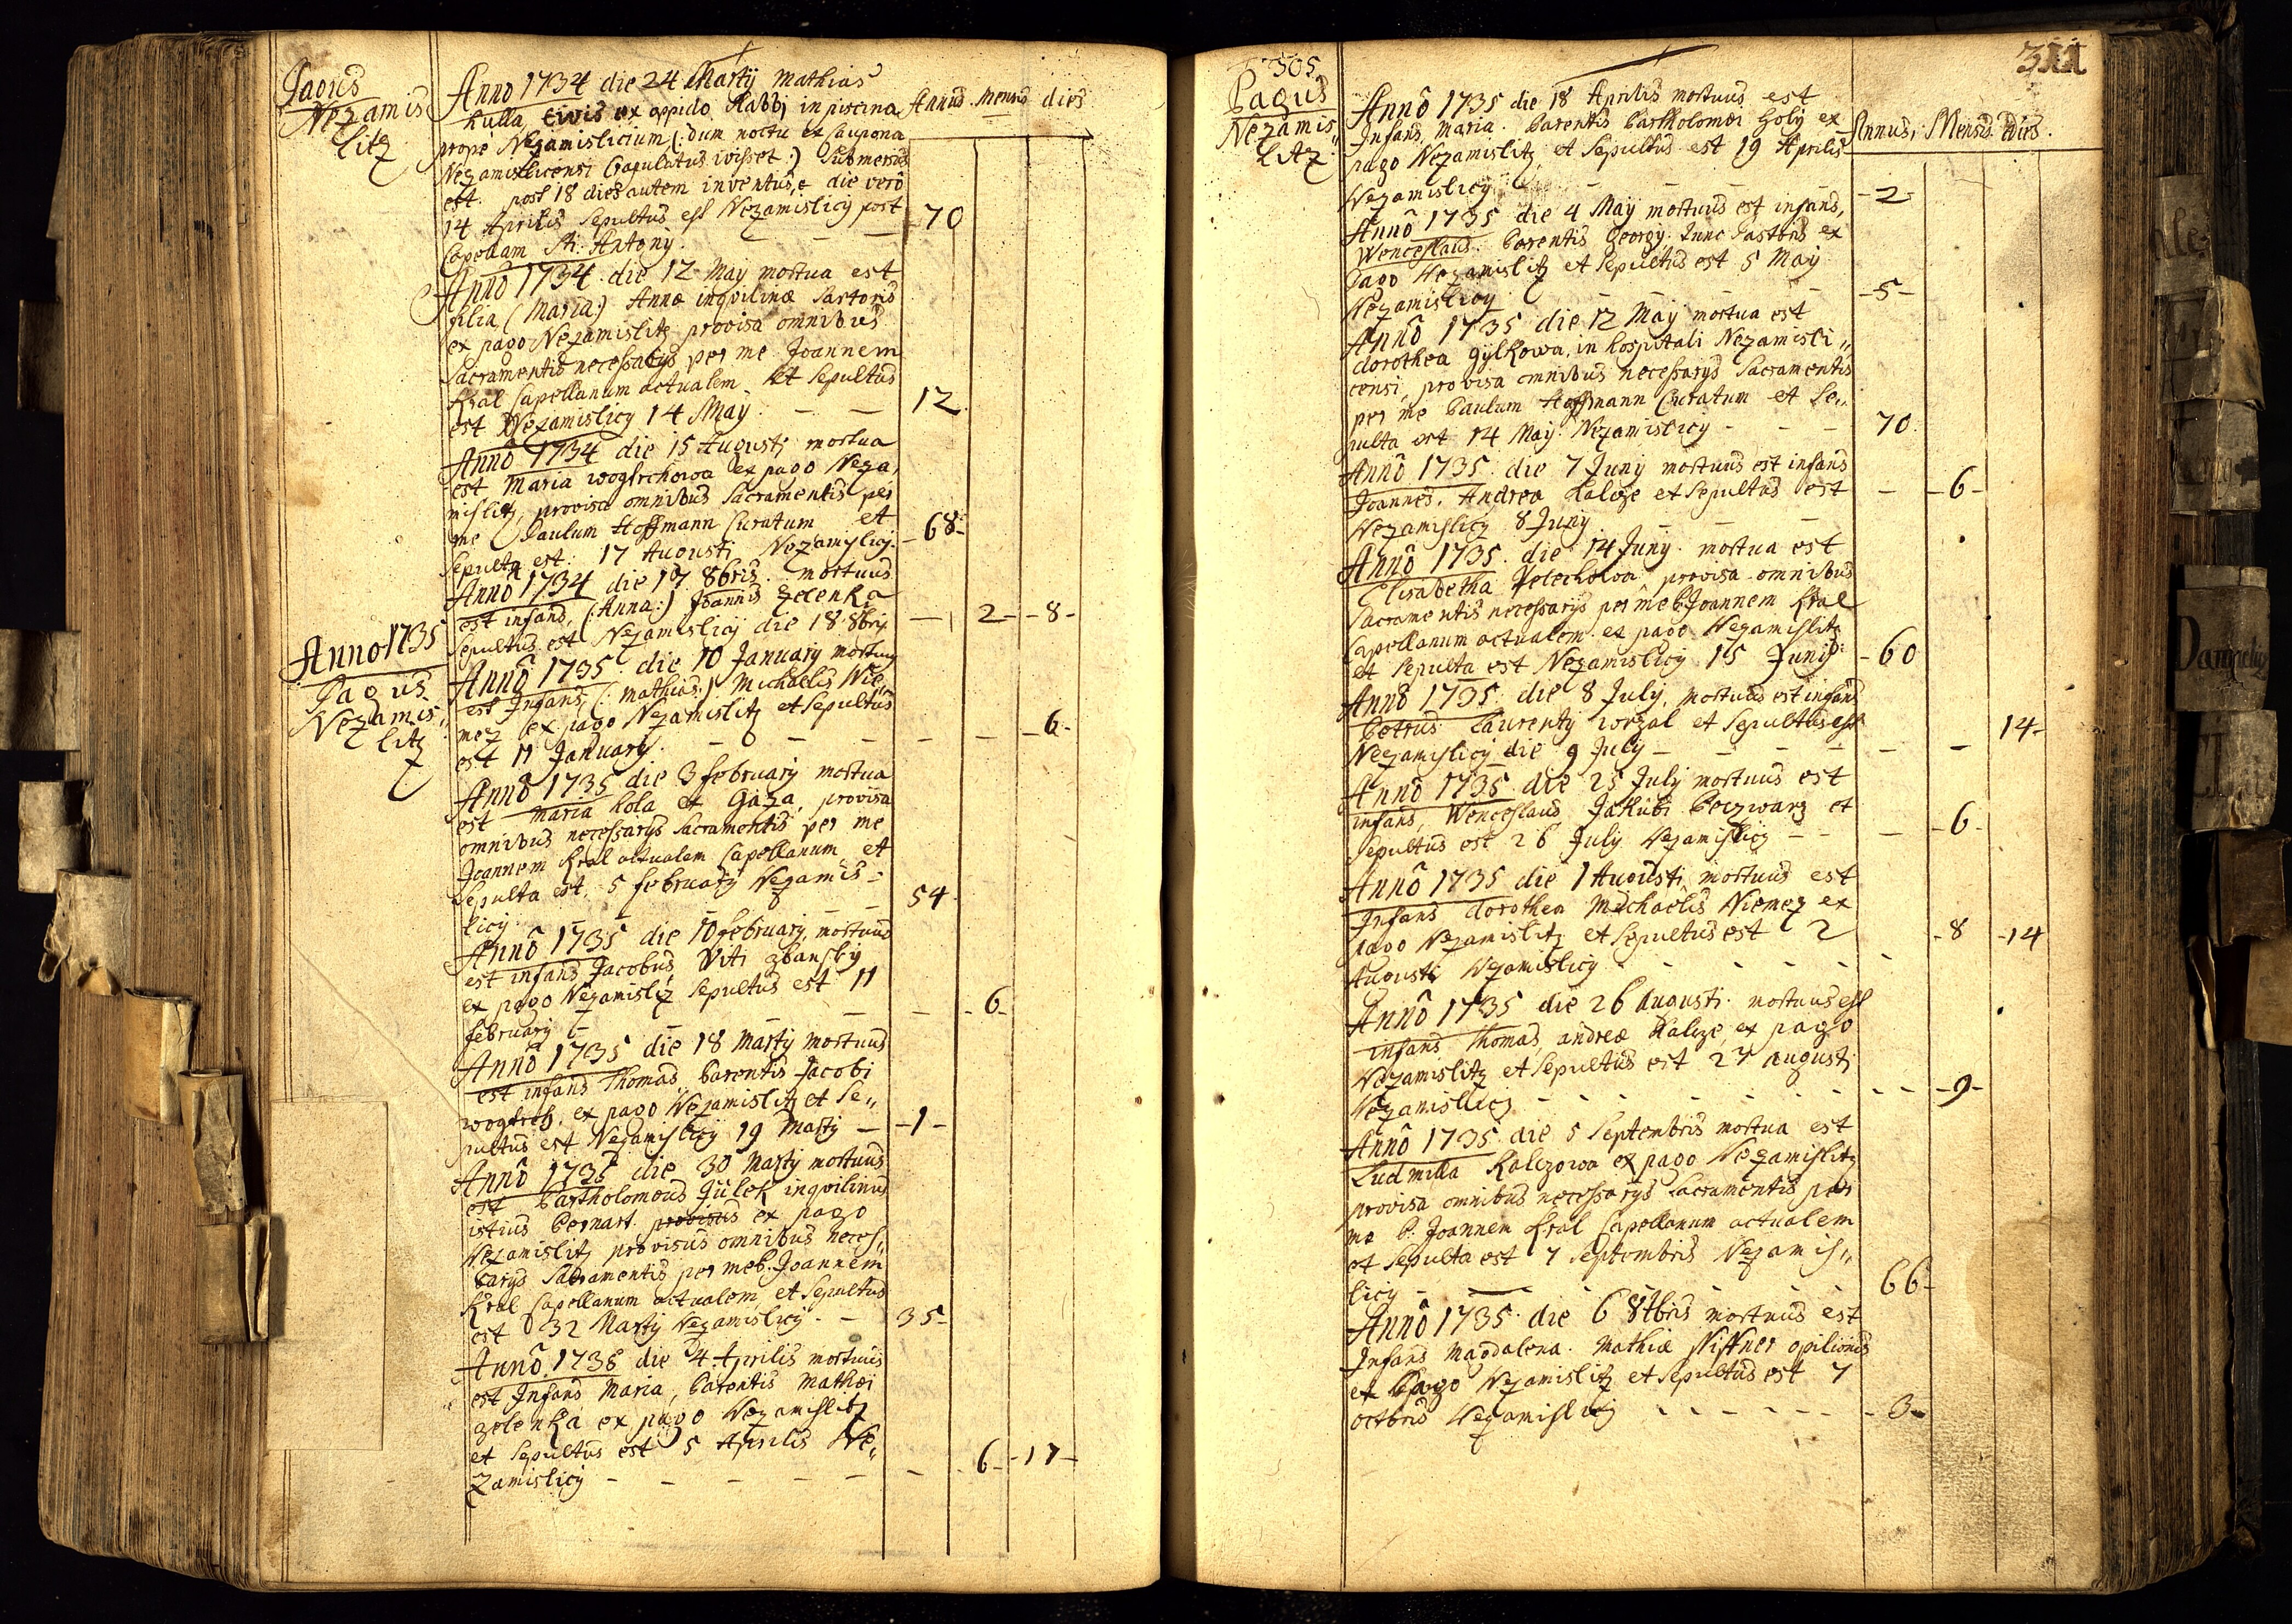 Pagus
Nezamis
litz
Anno 1734 die 24 Martÿ Mathias
Kulla, Civis ex oppido Rabbj in piscina
prope Nezamislicium (: dum noctu ex caupona
Nezamislicensi Crapulatus ivisset :) Submersus
est. post 18 dies autem inventus, e die vero
14 Aprilis Sepultus est Nezamislicÿ post
Capellam Sti: Antonÿ. — — —
Annus. Mensis dies
70
Anno 1734 die 12 Maÿ mortua est
filia (Maria:) Annæ inqvilinæ Sartoris
ex pago Nezamislitz provisa omnibus
Sacramentis necessarÿs per me Joannem
Kral Capellanum actualem et Sepultus
est Nezamislicÿ 14 Maÿ. — —
12
Anno 1734 die 15 Augustj mortua
est Maria wogtrchowa ex pago Neza,
mislitz, provisa omnibus Sacramentis per
me Paulum Hoffmann Curatum et
Sepulta est. 17 Augusti Nezamÿslicÿ.
- 68 -
Anno 1734 die 17 8bris. mortuus
est infans, (: Anna:) Joannis Zelenka
Sepultus est Nezamislicÿ die 18 8bris
— 2 - - 8 -
Anno 1735
Pagus
Nezamis,,
litz
Anno 1735. die 10 Januarÿ mortuus
est Infans, (: Mathias:) Michaelis Nie,,
mez ex pago Nezamislitz et Sepultus
est 11 Januarÿ. — — — — —
- 6 -
Anno 1735 die 3 februarÿ mortua
est Maria kola et Gaza, provisa
omnibus necessarÿs Sacramentis per me
Joannem Kral actualem Capellanum et
Sepulta est. 5 februarÿ Nezamis-
licÿ. — — — —
54
Anno 1735 die 10 februarÿ mortuus
est infans Jacobus, Viti zbanskÿ
ex pago Nezamislitz Sepultus est 11
februarÿ — — — —
- 6 -
Anno 1735 die 18 Martÿ mortuus
est infans Thomas Parentis Jacobi
wogtrch, ex pago Nezamislitz et Se,,
pultus est Nezamislicÿ 19 Martÿ —
- 1 -
Anno 1735 die 30 Martÿ mortuus
est Bartholomeus Jülek inqvilinus
istius Bernart. provisus ex pago
Nezamislitz provisus omnibus neces,,
sarÿs Sacramentis per me P. Joannem
Kral Capellanum actualem, et Sepultus
est 32 Martÿ Nezamislicÿ. —
35 -
Anno 1735 die 4 Aprilis mortuus
est Infans Maria, Parentis Mathæi
zelenka ex pago Nezamislitz
et Sepultus est 5 Aprilis Ne,,
zamislicÿ — — — — —
- 6 - - 17 -
305.
311
Pagus
Nezamis,,
litz
Anno 1735 die 18 Aprilis mortuus est
Infans Maria. Parentis Bartholomæi Holÿ ex
pago Nezamislitz, et Sepultus est 19 Aprilis
Nezamislicÿ. — — — —
Annus, Mensis. dies.
- 2 -
Anno 1735 die 4 Maÿ mortuus est infans,
Wenceslaus. Parentis Georgÿ. Tunc Pastoris ex
Pago Nezamislitz et Sepultus est 5 Maÿ
Nezamislicÿ — — — —
- 5 -
Anno 1735 die 12 Maÿ mortua est
dorothea Gÿlkowa, in hospitali Nezamisli,,
censi, provisa omnibus necessarÿs Sacramentis
per me Paulum Hoffmann Curatum et Se,,
pulta est 14 Maÿ. Nezamislicÿ - - -
70.
Anno 1735. die 7 Junÿ mortuus est infans
Joannes. Andrea kalcze et Sepultus est
Nezamislicÿ 8 Junÿ. — — —
- 6 -
Anno 1735. die 14 Junÿ. mortua est
Elisabetha Petechowa, provisa omnibus
Sacramentis necessarÿs per me P. Joannem Kral
Capellanum actualem. ex pago Nezamislitz
et Sepulta est Nezamislicÿ 15 Junÿ
- 60
Anno 1735. die 8 Julÿ, mortuus est infans
Petrus Laurentÿ worzal et Sepultus est
Nezamislicÿ die 9 Julÿ - — — —
14 -
Anno 1735 die 25 Julÿ mortuus est
infans, Wenceslaus Jakubi Boczwarz et
Sepultus est 26 Julÿ Nezamislicÿ - -
- 6 -
Anno 1735 die 1 Augusti mortuus est
Infans dorothea Michaelis Niemez ex
pago Nezamislitz et Sepultus est 2
Augusti Nezamislicÿ - - - - -
- 8 - 14
Anno 1735 die 26 Augusti. mortuus est
infans Thomas, andreæ Kalcze, ex pago
Nezamislitz et Sepultus est 27 augusti
Nezamislicÿ - - - - - -
- 9 -
Anno 1735. die 5 Septembris mortua est
Ludmilla Kalczowa ex pago Nezamislitz
provisa omnibus necessarÿs Sacramentis per
me P. Joannem Kral Capellanum actualem
et Sepulta est 7 Septembris Nezamis,,
licÿ - — - - - -
66 -
Anno 1735. die 6 8tbris mortuus est
Infans Magdalena. Mathiæ Niffner opilionis
ex Pago Nezamislitz et Sepultus est 7
octbris Nezamislicÿ - - - - - -
- 3 -